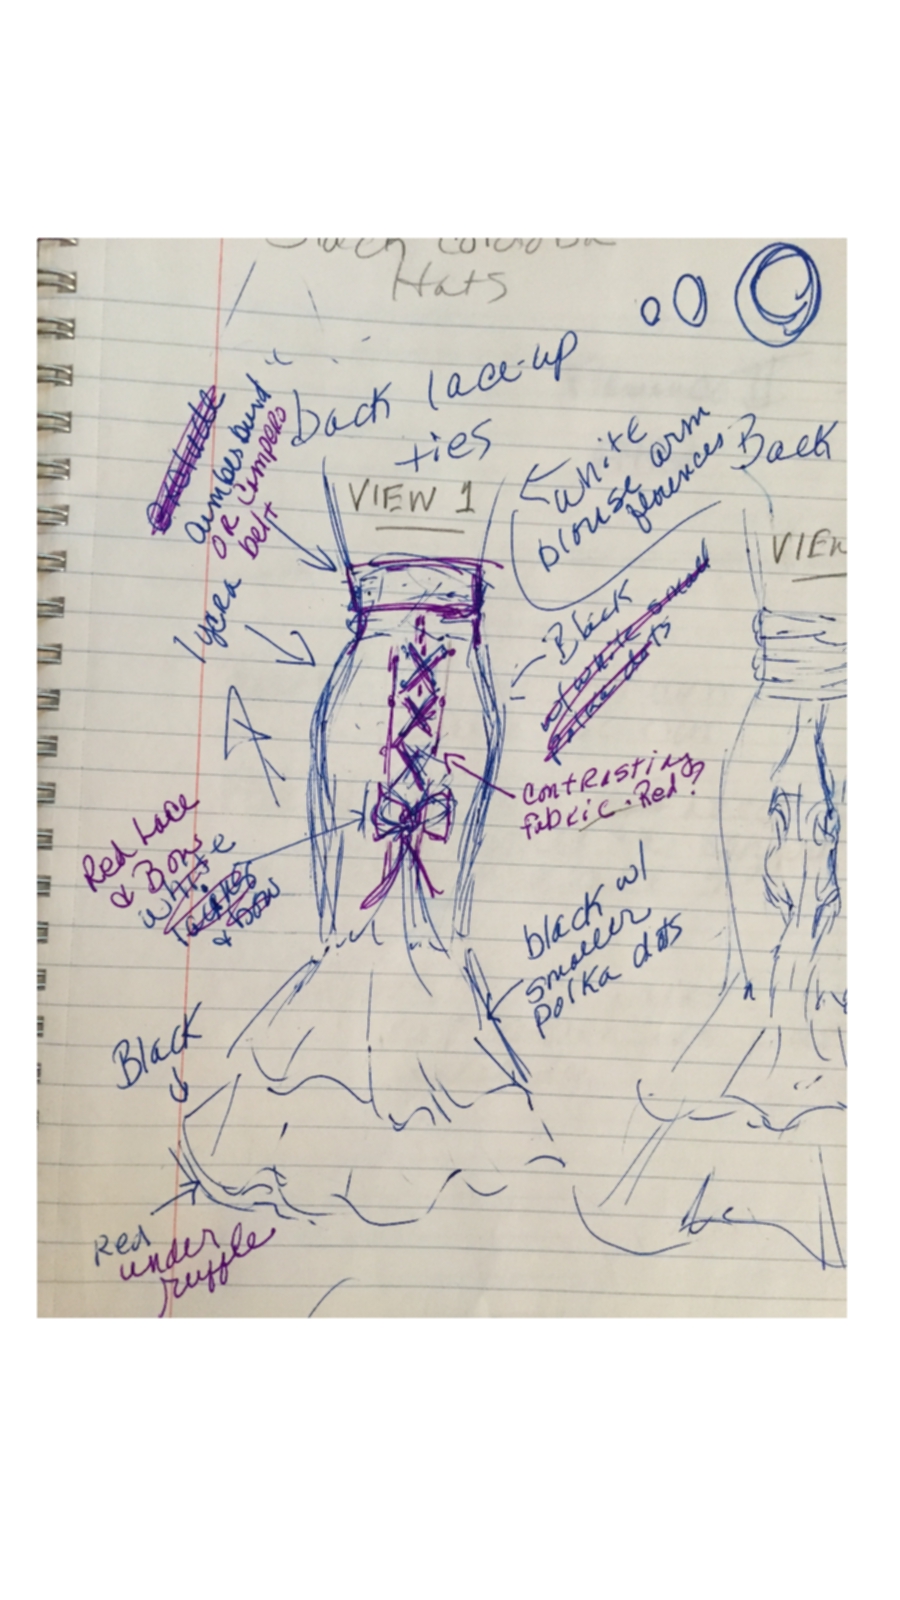 Hats
back lace-up
ties
cumberbund
OR Cumpero
belt
lycra
VIEW 1
white
blouse arm
flounces
Back
VIEW
Black
w/ white small
polka dots
contrasting
fabric - Red?
Red Lace
& Bow
white
laces
& bow
black w/
smaller
polka dots
Black
Red
under
ruffle